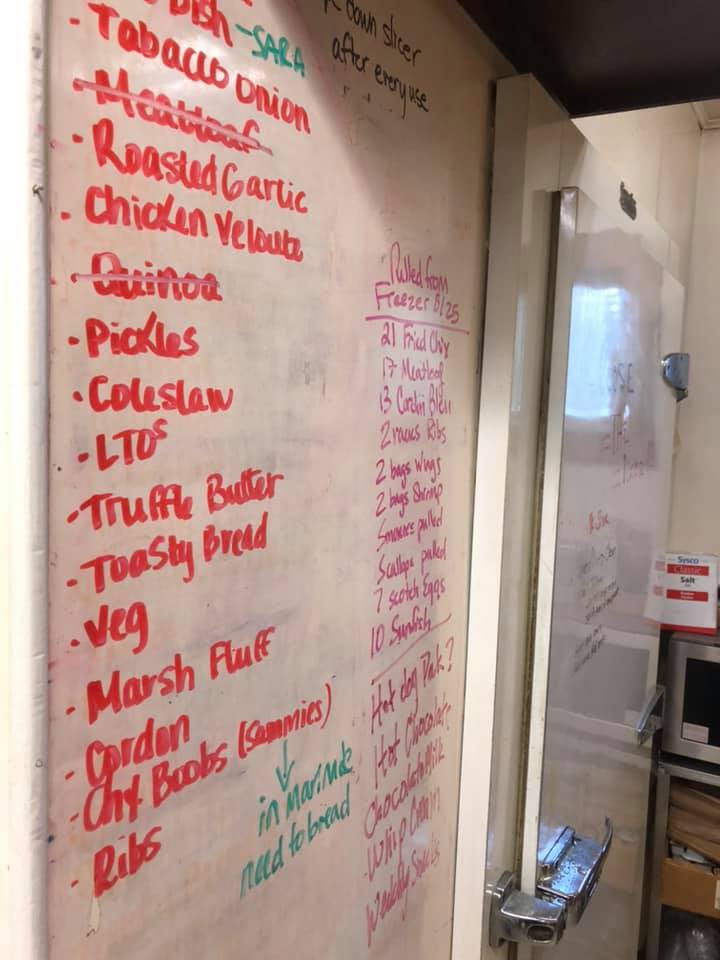 Dish - SARA
- Tabacco onion
- Meatloaf
- Roasted Garlic
- Chicken Veloute
- Quinoa
- Pickles
- Coleslaw
- LTOs
- Truffle Butter
- Toasty Bread
- Veg
- Marsh Fluff
- Cordon
- Chx Boobs (sammies)
in marinade
need to bread
- Ribs
down slicer
after every use
Pulled from
Freezer
21 Fried Chix
17 Meatloaf
13 Cordon Bleu
2 racks Ribs
2 bags Wings
2 bags Shrimp
pulled
Scallops pulled
7 scotch Eggs
10
Hot dog Pack?
Hot Chocolate
Chocolate Milk
Whip Cream
Weekly
THE
Sysco
Classic
Salt